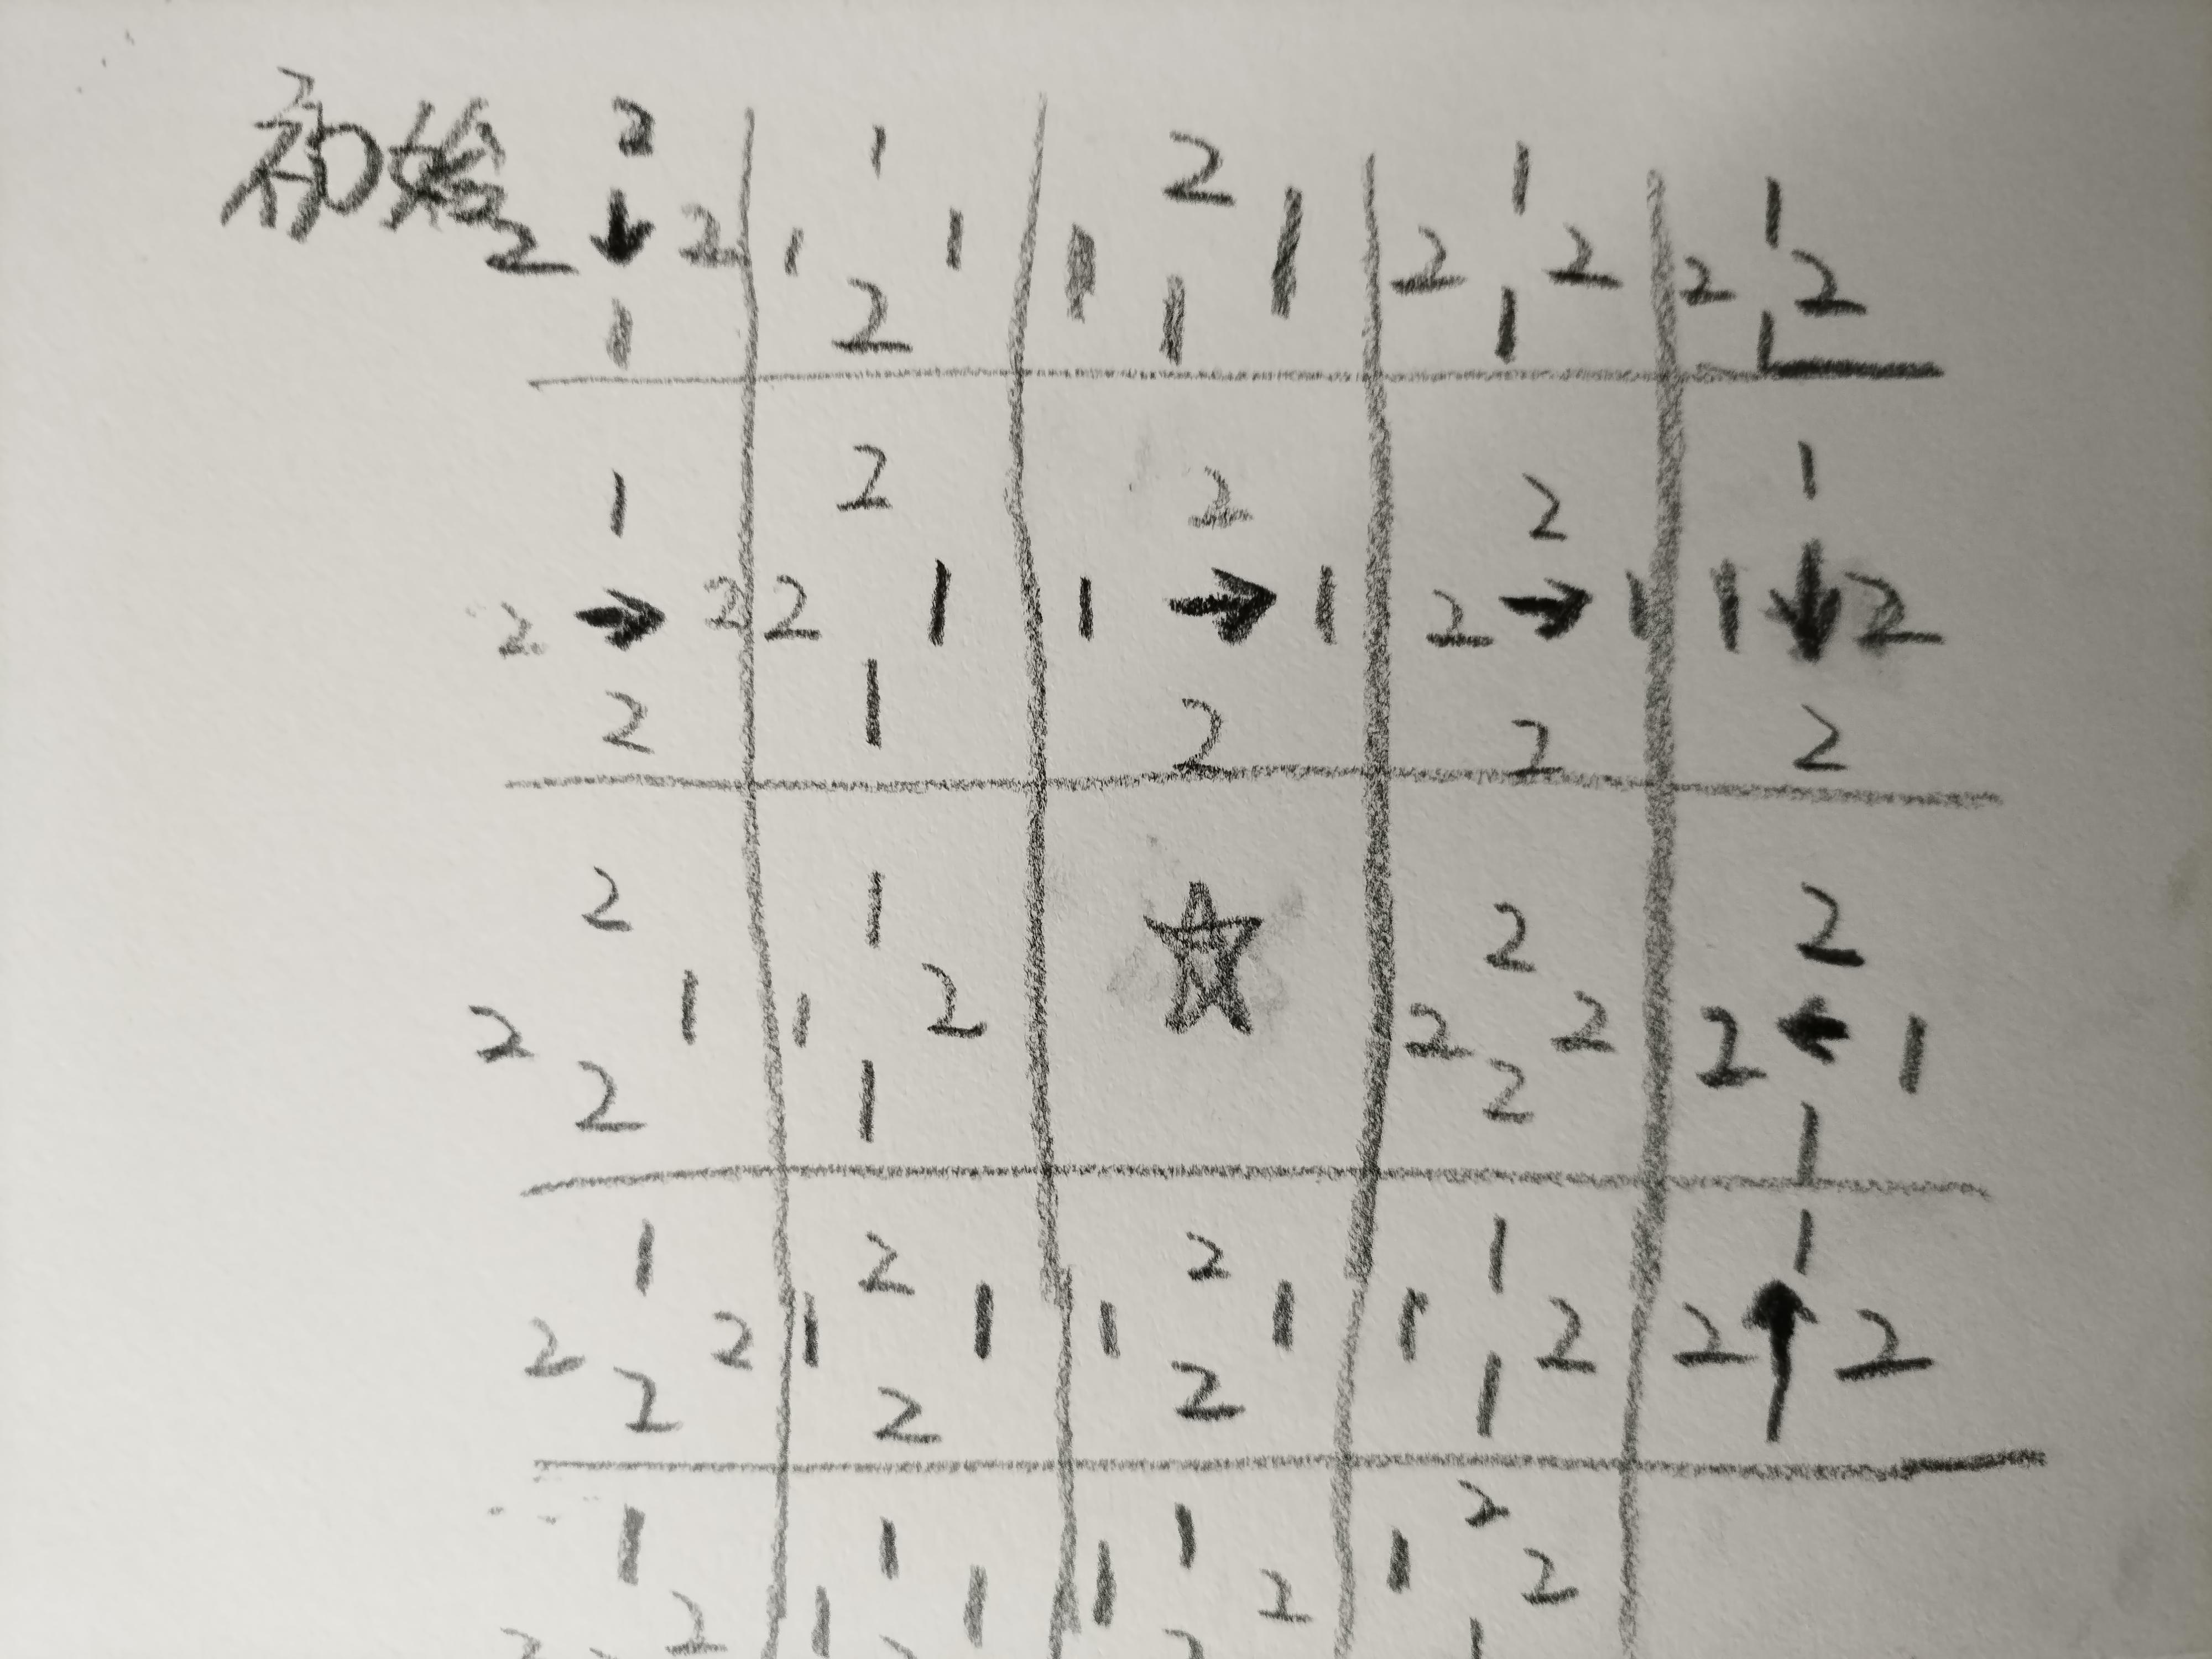 初始 2 1 2 1 1
2 ↓ 2 1 1 1 1 2 2 2 2
1 2 1 1 1
1 2 2 2 1
2 → 2 2 1 1 → 1 2 → 1 1 ↓ 2
2 1 2 2 2
2 1 ☆ 2 2
2 1 1 2 2 2 2 ← 1
2 1 2 1
1 2 2 1 1
2 2 1 1 1 1 1 2 2 ↑ 2
2 2 2 1
1 1 1 2
2 1 1 1 2 1 2